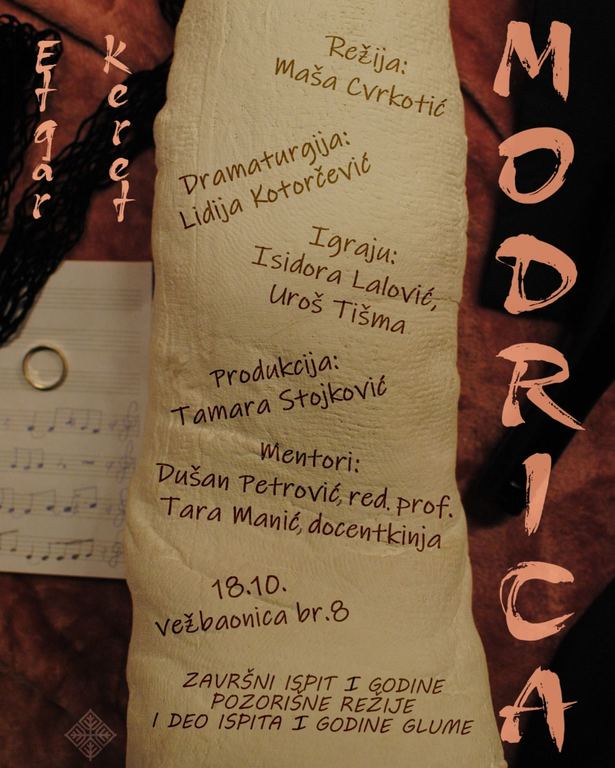 Etgar
Keret
MODRICA
Režija:
Maša Cvrkotić
Dramaturgija:
Lidija Kotorčević
Igraju:
Isidora Lalović,
Uroš Tišma
Produkcija:
Tamara Stojković
Mentori:
Dušan Petrović, red. prof.
Tara Manić, docentkinja
18.10.
vežbaonica br.8
ZAVRŠNI ISPIT I GODINE
POZORIŠNE REŽIJE
I DEO ISPITA I GODINE GLUME